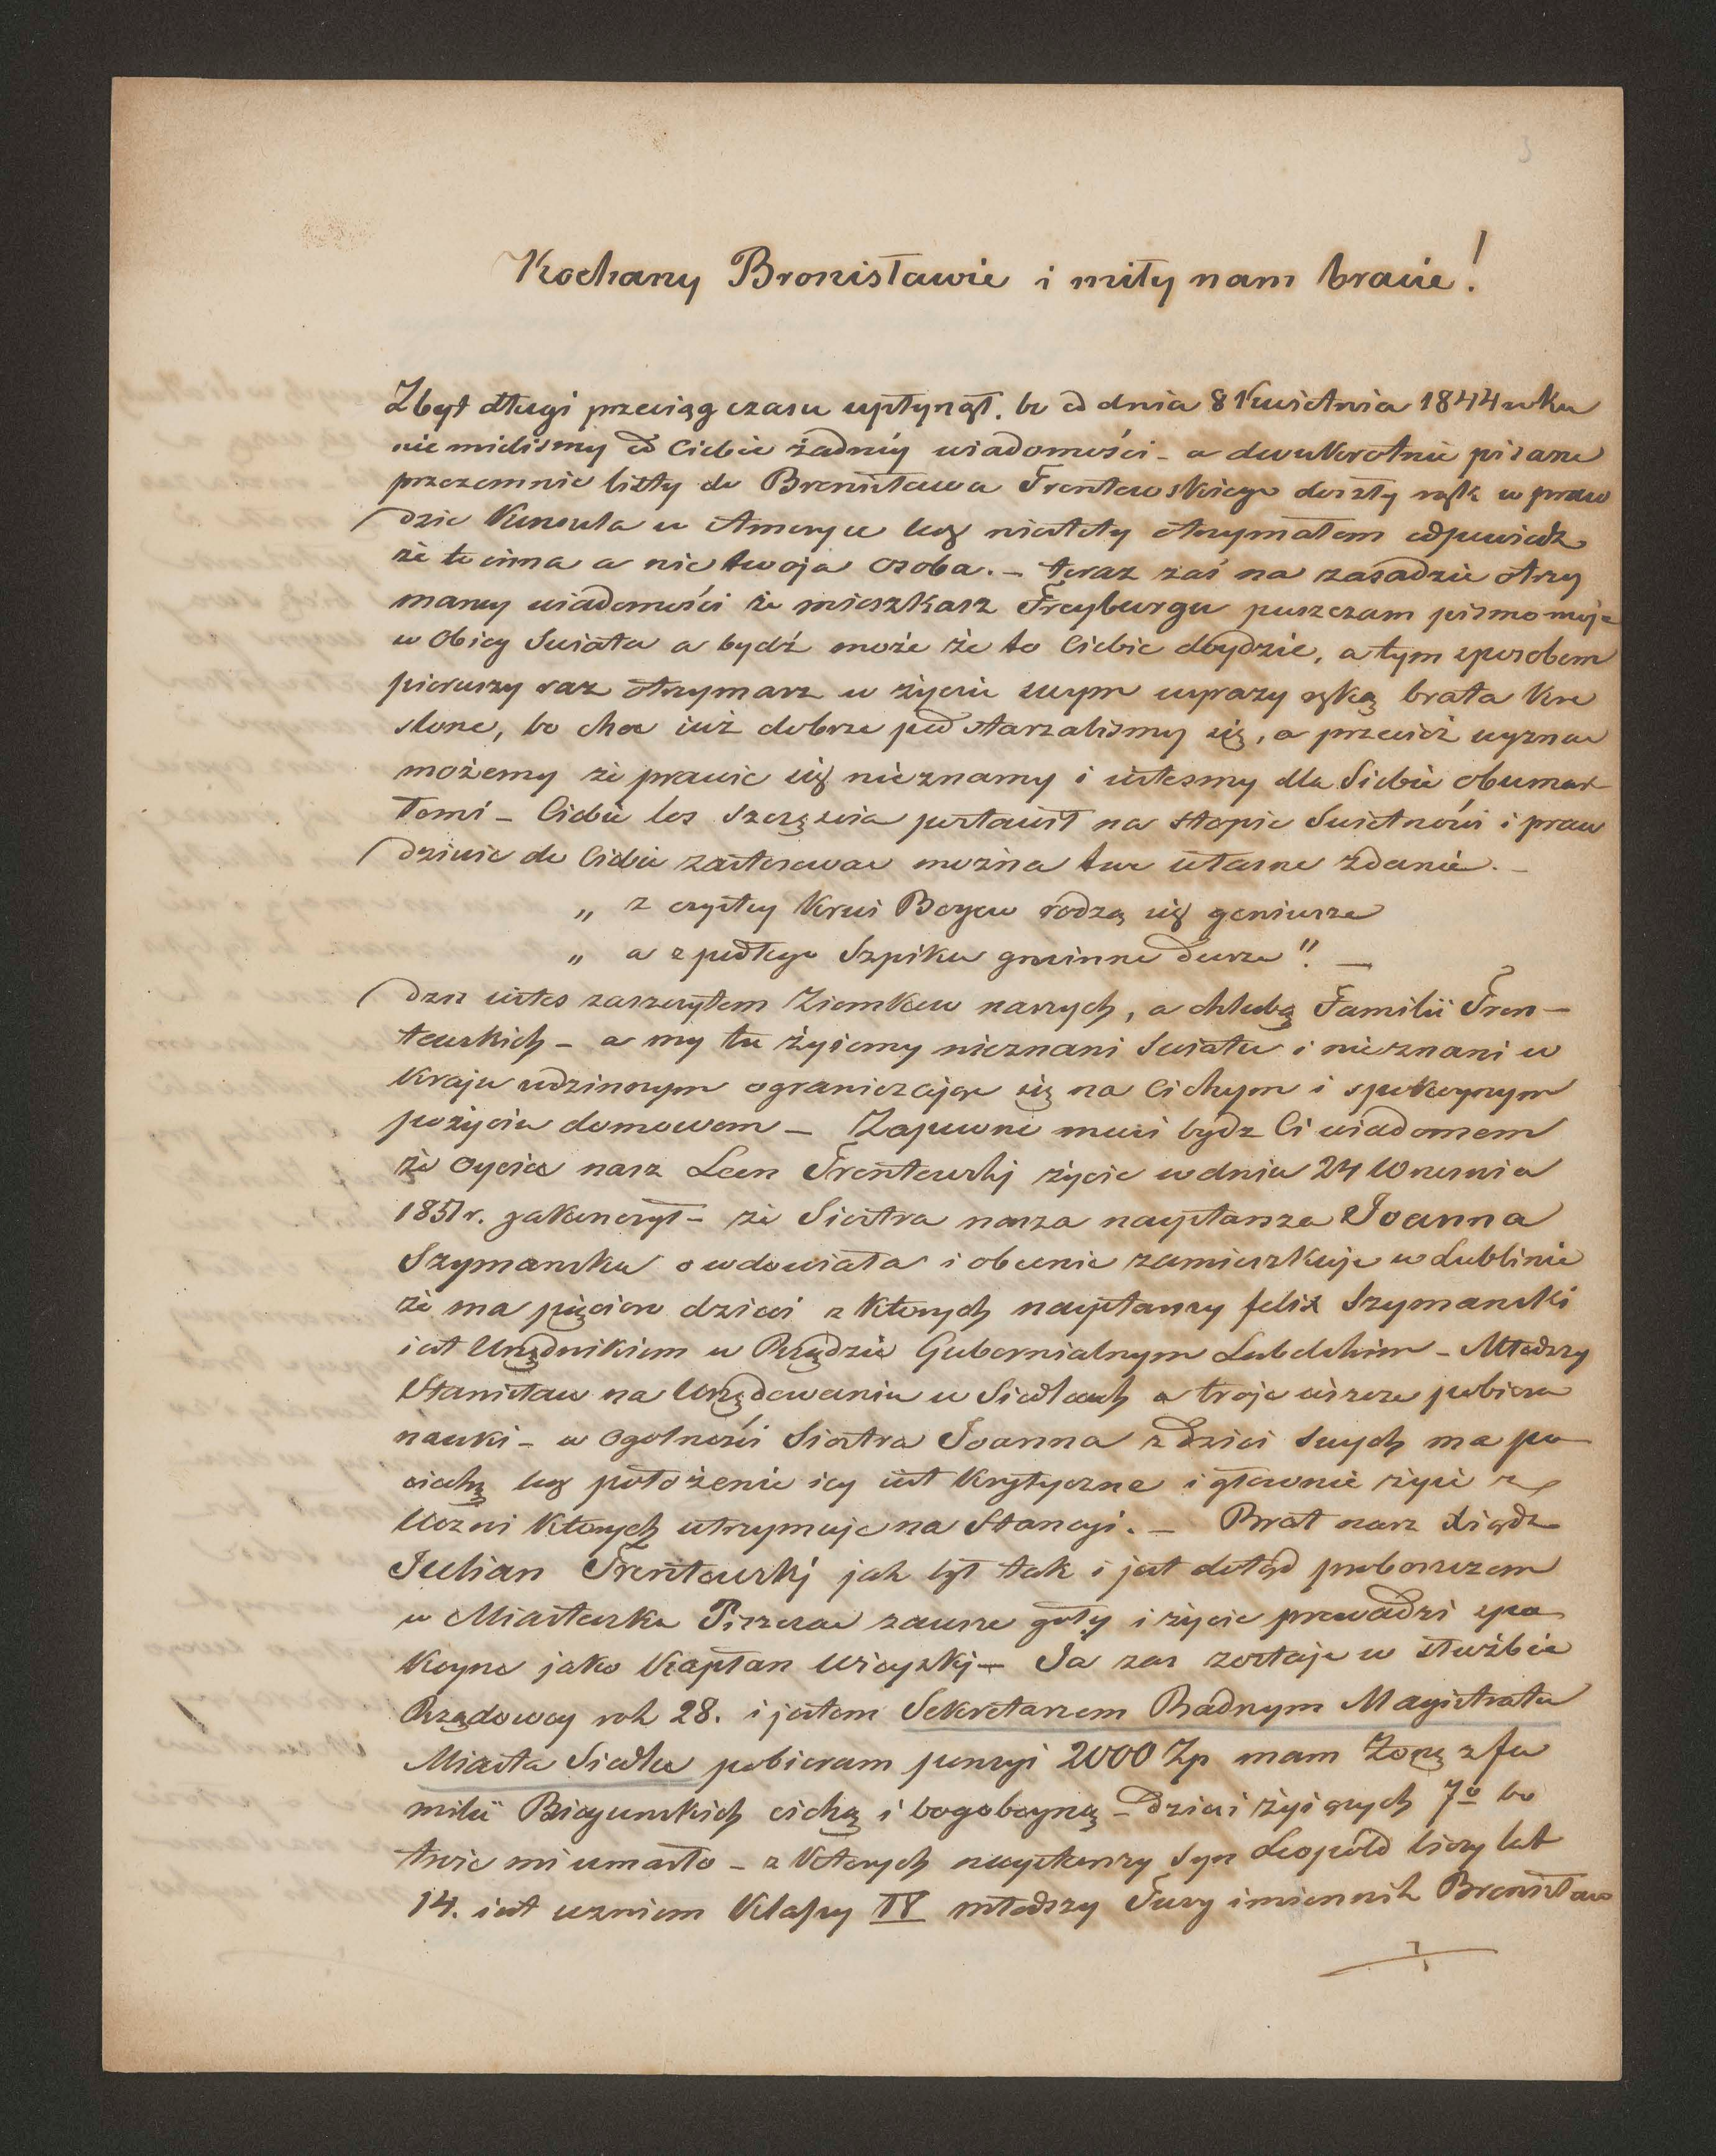 3
Kochany Bronisławie i miły nam bracie!
Zbyt długi przeciąg czasu upłynął. bo od dnia 8 Kwietnia 1844 roku
nie mieliśmy od Ciebie żadnéy wiadomości - a dwukrotnie pisane
przezemnie listy do Bronisława Trentowskiego doszły rąk w praw
dzie Konsula w Ameryce lecz niestety otrzymałem odpowiedz
że to inna a nie twoja osoba. - teraz zaś na zasadzie otrzy
maney wiadomości że mieszkasz Freyburgu puszczam pismo moje
w Obieg Swiata a bydź może że to Ciebie dóydzie, a tym sposobem
pierwszy raz otrzymasz w życiu swym wyrazy ręką brata kre
slone, bo choc iuż dobrze pod starzaliśmy się, a przecież wyznac
możemy że prawie się nieznamy i iestesmy dla Siebie obumar
łemi - Ciebie los szczęscia postawił na stopie Swietności i praw
dziwie do Ciebie zastosowac można twe własne zdanie. -
„ z czystey Krwi Bogow rodzą się geniusze
„ a z podłego Szpiku gminne dusze". -
dzis iestes zaszczytem Ziomkow naszych, a chlubą Familii Tren-
towskich - a my tu żyiemy nieznani Swiatu i nieznani w
Kraju rodzinnym ograniczając się na Cichym i spokoynym
pożyciu domowem - Zapewne musi bydz Ci wiadomem
że Oyciec nasz Leon Trentowski życie w dniu 24 Wrzesnia
1851 r. zakonczył - że Siostra nasza naystarsza Joanna
Szymanska owdowiała i obecnie zamieszkuje w Lublinie
że ma pięcioro dzieci z których naystarszy felix Szymanski
iest Urzędnikiem w Rządzie Gubernialnym Lubelskim - Młodszy
Stanisław na Urzędowaniu w Siedlcach a troje ieszcze pobiera
nauki - w Ogolności Siostra Joanna z dzieci swych ma po
ciechę lecz położenie iey iest krytyczne i głownie żyie z
Uczni których utrzymuje na Stancyi. - Brat nasz Xiądz
Julian Trentowski jak był tak i jest dotąd proboszczem
w Miasteczku Piszczac zawsze goły i życie prowadzi spo
koyne jako Kapłan Wieyski - Ja zas zostaje w służbie
Rządowey rok 28. i jestem Sekretarzem Radnym Magistratu
Miasta Siedlec pobieram pensyi 2000 Zp mam Żonę z fa
milii Biegunskich cichą i bogoboyną - Dzieci żyiących 7o bo
troie mi umarło - z Których naystarszy syn Leopold liczy lat
14. iest uczniem Klassy IV młodszy Twoy imiennik Bronisław